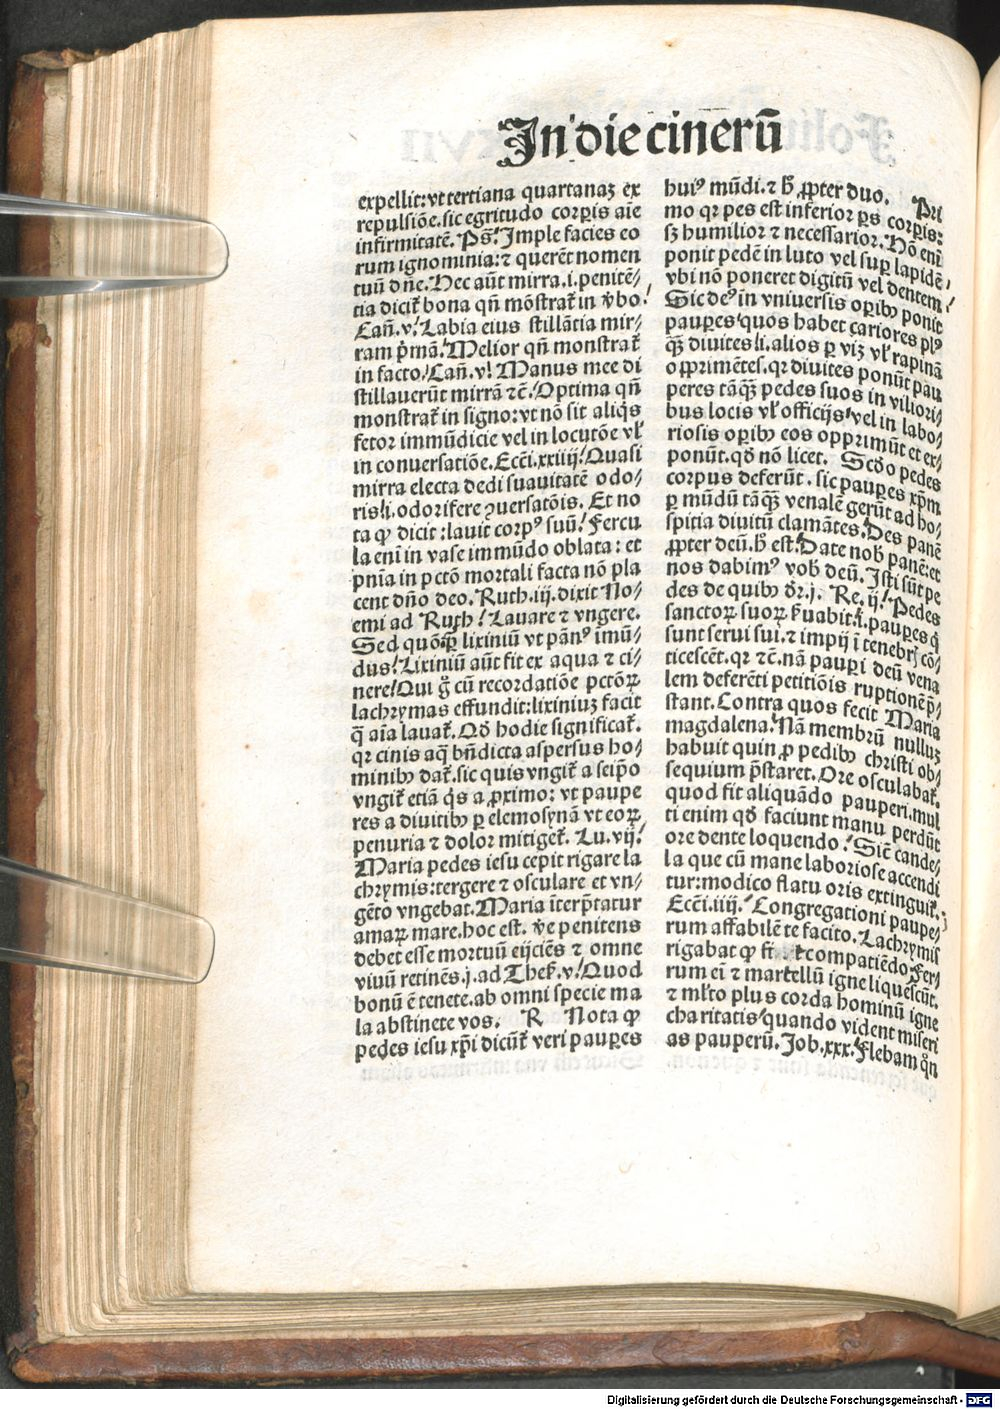 In die cinerū
expellit: vt tertiana quartanaȝ ex
repulsiōe. sic egritudo corpꝑis aīe
infirmitatē. Ps̄. Imple facies eo
rum ignominia: ⁊ querēt nomen
tuū dn̄e. Nec aūt mirra .i. penitē/
tia dicit᷑ bona qn̄ mōstrat᷑ in v̄bo.
Cañ. v. Labia eius stillātia mir/
ram p̄mā. Melior qn̄ monstrat᷑
in facto. Cañ. v. Manus mee di
stillauerūt mirrā ⁊c̄. Optima qn̄
monstrat᷑ in signo: vt nō sit aliq̄s
fetor immūdicie vel in locutōe vl᷑
in conuersatiōe. Ecc̄i. xxiiij. Quasi
mirra electa dedi suauitatē odo/
ris .i. odorifere ꝯuersatōis. Et no
ta ꝙ dicit: lauit corpꝰ suū. Fercu
la eni᷑ in vase immūdo oblata: et
pnīa in pctō mortali facta nō pla
cent dn̄o deo. Ruth. iij. dixit No/
emi ad Ruth. Lauare ⁊ vngere.
Sed quō. Per lixiniū vt pānꝰ īmū/
dus. Lixiniū aūt fit ex aqua ⁊ ci/
nere. Qui g̊ cū recordatiōe pctōꝝ
lachrymas effundit: lixiniuȝ facit
q̄ aīa lauat᷑. Qd̄ hodie significat᷑.
qꝛ cinis aq̄ bn̄dicta aspersus ho/
minibꝰ dat᷑. sic quis vngit᷑ a seip̄o
vngit᷑ etiā q̄s a ꝓximo: vt paupe
res a diuitibꝰ ꝑ elemosynā vt eoꝝ
penuria ⁊ dolor mitiget᷑. Lu. vij.
Maria pedes iesu cepit rigare la
chrymis: tergere ⁊ osculare et vn/
gēto vngebat. Maria īterp̄tatur
amaꝝ mare. hoc est. v̄e penitens
debet esse mortuū eijciēs ⁊ omne
viuū retinēs. j. ad Thes̄. v. Quod
bonū ē tenete. ab omni specie ma
la abstinete vos. R Nota ꝙ
pedes iesu xp̄i dicūt᷑ veri pauꝑes
huiꝰ mūdi. ⁊ h̄ ꝓpter duo. Pri
mo qꝛ pes est inferior ꝑs corꝑis:
sȝ humilior ⁊ necessarior. Nō enī
ponit pedē in luto vel suꝑ lapidē
vbi nō poneret digitū vel dentem.
Sic deꝰ in vniuersis oꝑibꝰ ponit
pauꝑes quos habet cariores plꝰ
q̄ȝ diuites .i. alios ꝑ viȝ vl᷑ rapinā
opprimētes. qꝛ diuites ponūt pau
peres tāq̄ȝ pedes suos in viliori/
bus locis vl᷑ officijs vel in labo/
riosis oꝑibꝰ eos opprimūt et ex/
ponūt. qd̄ nō licet. Scd̄o pedes
corpus deferūt. sic pauꝑes xp̄m
ꝑ mūdū tāq̄ȝ venalē gerūt ad ho/
spitia diuitū clamātes. Des panē
ꝓpter deū. h̄ est. Date nob̄ panē: et
nos dabimꝰ vob̄ deū. Isti sūt pe
des de quibꝰ dr̄. j. Re. ij. Pedes
sanctoꝝ suoꝝ s̄uabit .i. pauꝑes q̄
sunt serui sui. ⁊ impij ī tenebrꝭ cō/
ticescēt. qꝛ ⁊c̄. nā pauꝑi deū vena
lem deferēti petitiōis ruptionē p̄/
stant. Contra quos fecit Maria
magdalena. Nā membrū nulluȝ
habuit quin ꝓ pedibꝰ christi ob/
sequium p̄staret. Ore osculabat᷑.
quod fit aliquādo pauperi. mul
ti enim qd̄ faciunt manu perdūt
ore dente loquendo. Sic̄ cande/
la que cū mane laboriose accendi
tur: modico flatu oris extinguit᷑.
Ecc̄i. iiij. Congregationi paupe/
rum affabilē te facito. Lachrymis
rigabat ꝙ fit compatiēdo. Fer/
rum ei᷑ ⁊ martellū igne liquescūt.
⁊ ml᷑to plus corda hominū igne
charitatis quando vident miseri
as pauperū. Job. xxx. Flebam qn̄
Digitalisierung gefördert durch die Deutsche Forschungsgemeinschaft - DFG